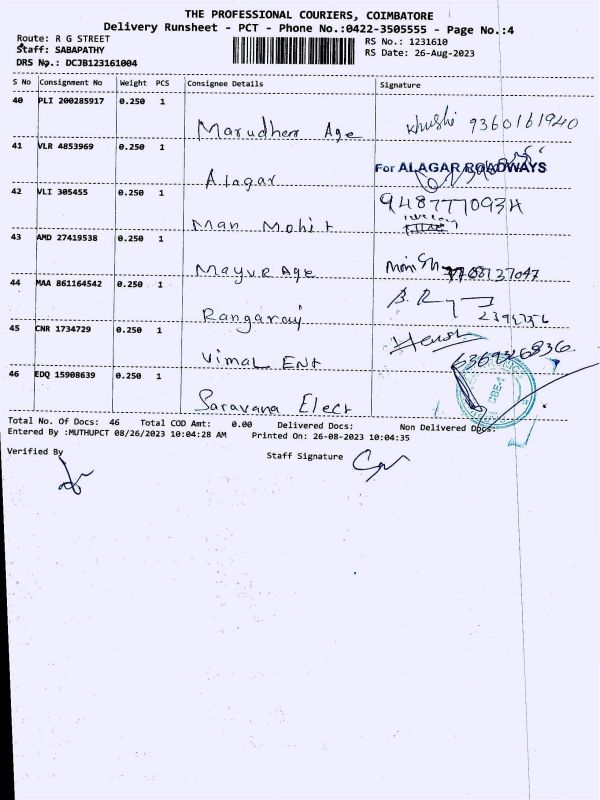 THE PROFESSIONAL COURIERS, COIMBATORE
Delivery Runsheet - PCT - Phone No.:0422-3505555 - Page No.:4
Route: R G STREET
RS No.: 1231610
Staff: SABAPATHY
RS Date: 26-Aug-2023
DRS No.: DCJB123161004
S No Consignment No Weight PCS Consignee Details Signature
40 PLI 200285917 0.250 1
Marudher Age Khushi 9360161940
41 VLR 4853969 0.250 1
For ALAGAR ROADWAYS
Alagar
42 VLI 305455 0.250 1
Man Mohit
43 AMD 27419538 0.250 1
Mayur Age
44 MAA 861164542 0.250 1
Rangaraj
45 CNR 1734729 0.250 1
Vimal Ent
46 EDQ 15908639 0.250 1
Saravana Elect
Total No. Of Docs: 46 Total COD Amt: 0.00 Delivered Docs: Non Delivered Docs:
Entered By :MUTHUPCT 08/26/2023 10:04:28 AM Printed On: 26-08-2023 10:04:35
Verified By Staff Signature